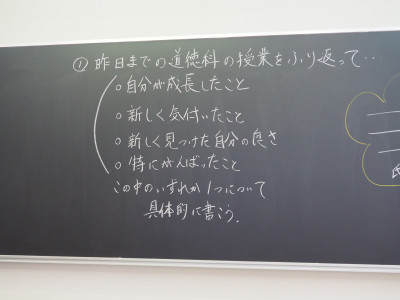 ① 昨日までの道徳科の授業をふり返って‥
○自分が成長したこと
○新しく気付いたこと
○新しく見つけた自分の良さ
○特にがんばったこと
この中のいずれか1つについて
具体的に書こう。